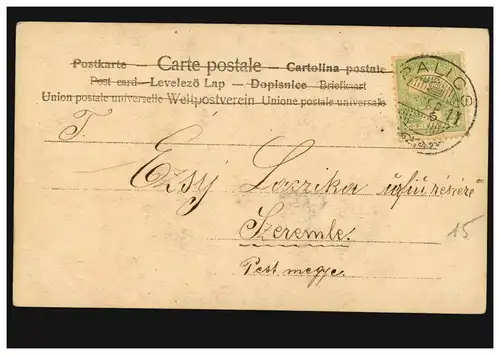 Postkarte – Carte postale – Cartolina postale
Post card – Levelező Lap – Dopisnice – Briefkaart
Union postale universelle Weltpostverein Unione postale universale
PALICS
T.
Ezsý Lazzika
Szeremle.
Pest megye.
15